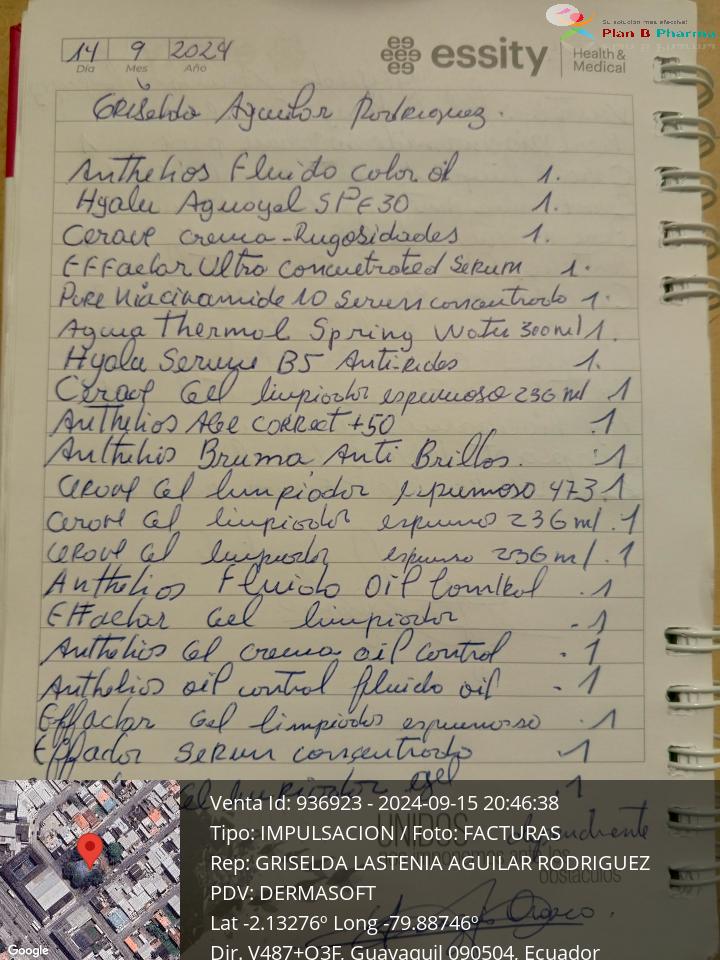 Su solución más efectiva!
Plan B Pharma
14 9 2024
Día Mes Año
essity Health & Medical
Griselda Aguilar Rodriguez.
Anthelios Fluido color oil 1.
Hyalu Aguagel SPF 30 1.
Cerave crema - Rugosidades 1.
Effaclar Ultra Concentrated Serum 1.
Pure Niacinamide 10 Serum concentrado 1.
Agua Thermal Spring Water 300ml 1.
Hyalu Serum B5 Anti-rides 1.
Cerave Gel limpiador espumoso 236 ml 1
Anthelios Age correct +50 .1
Anthelios Bruma Anti Brillos. 1
Cerave Gel limpiador espumoso 473.1
Cerave Gel limpiador espumo 236 ml .1
Cerave Gel limpiador espumo 236 ml .1
Anthelios Fluido Oil Control .1
Effaclar Gel limpiador .1
Anthelios Gel crema oil control .1
Anthelios oil control fluido oil .1
Effaclar Gel limpiador espumoso .1
Effaclar Serum concentrado .1
Gel limpiador .1
UNIDOS
obstáculos
Venta Id: 936923 - 2024-09-15 20:46:38
Tipo: IMPULSACION / Foto: FACTURAS
Rep: GRISELDA LASTENIA AGUILAR RODRIGUEZ
PDV: DERMASOFT
Lat -2.13276º Long -79.88746º
Dir. V487+Q3F, Guayaquil 090504, Ecuador
Google